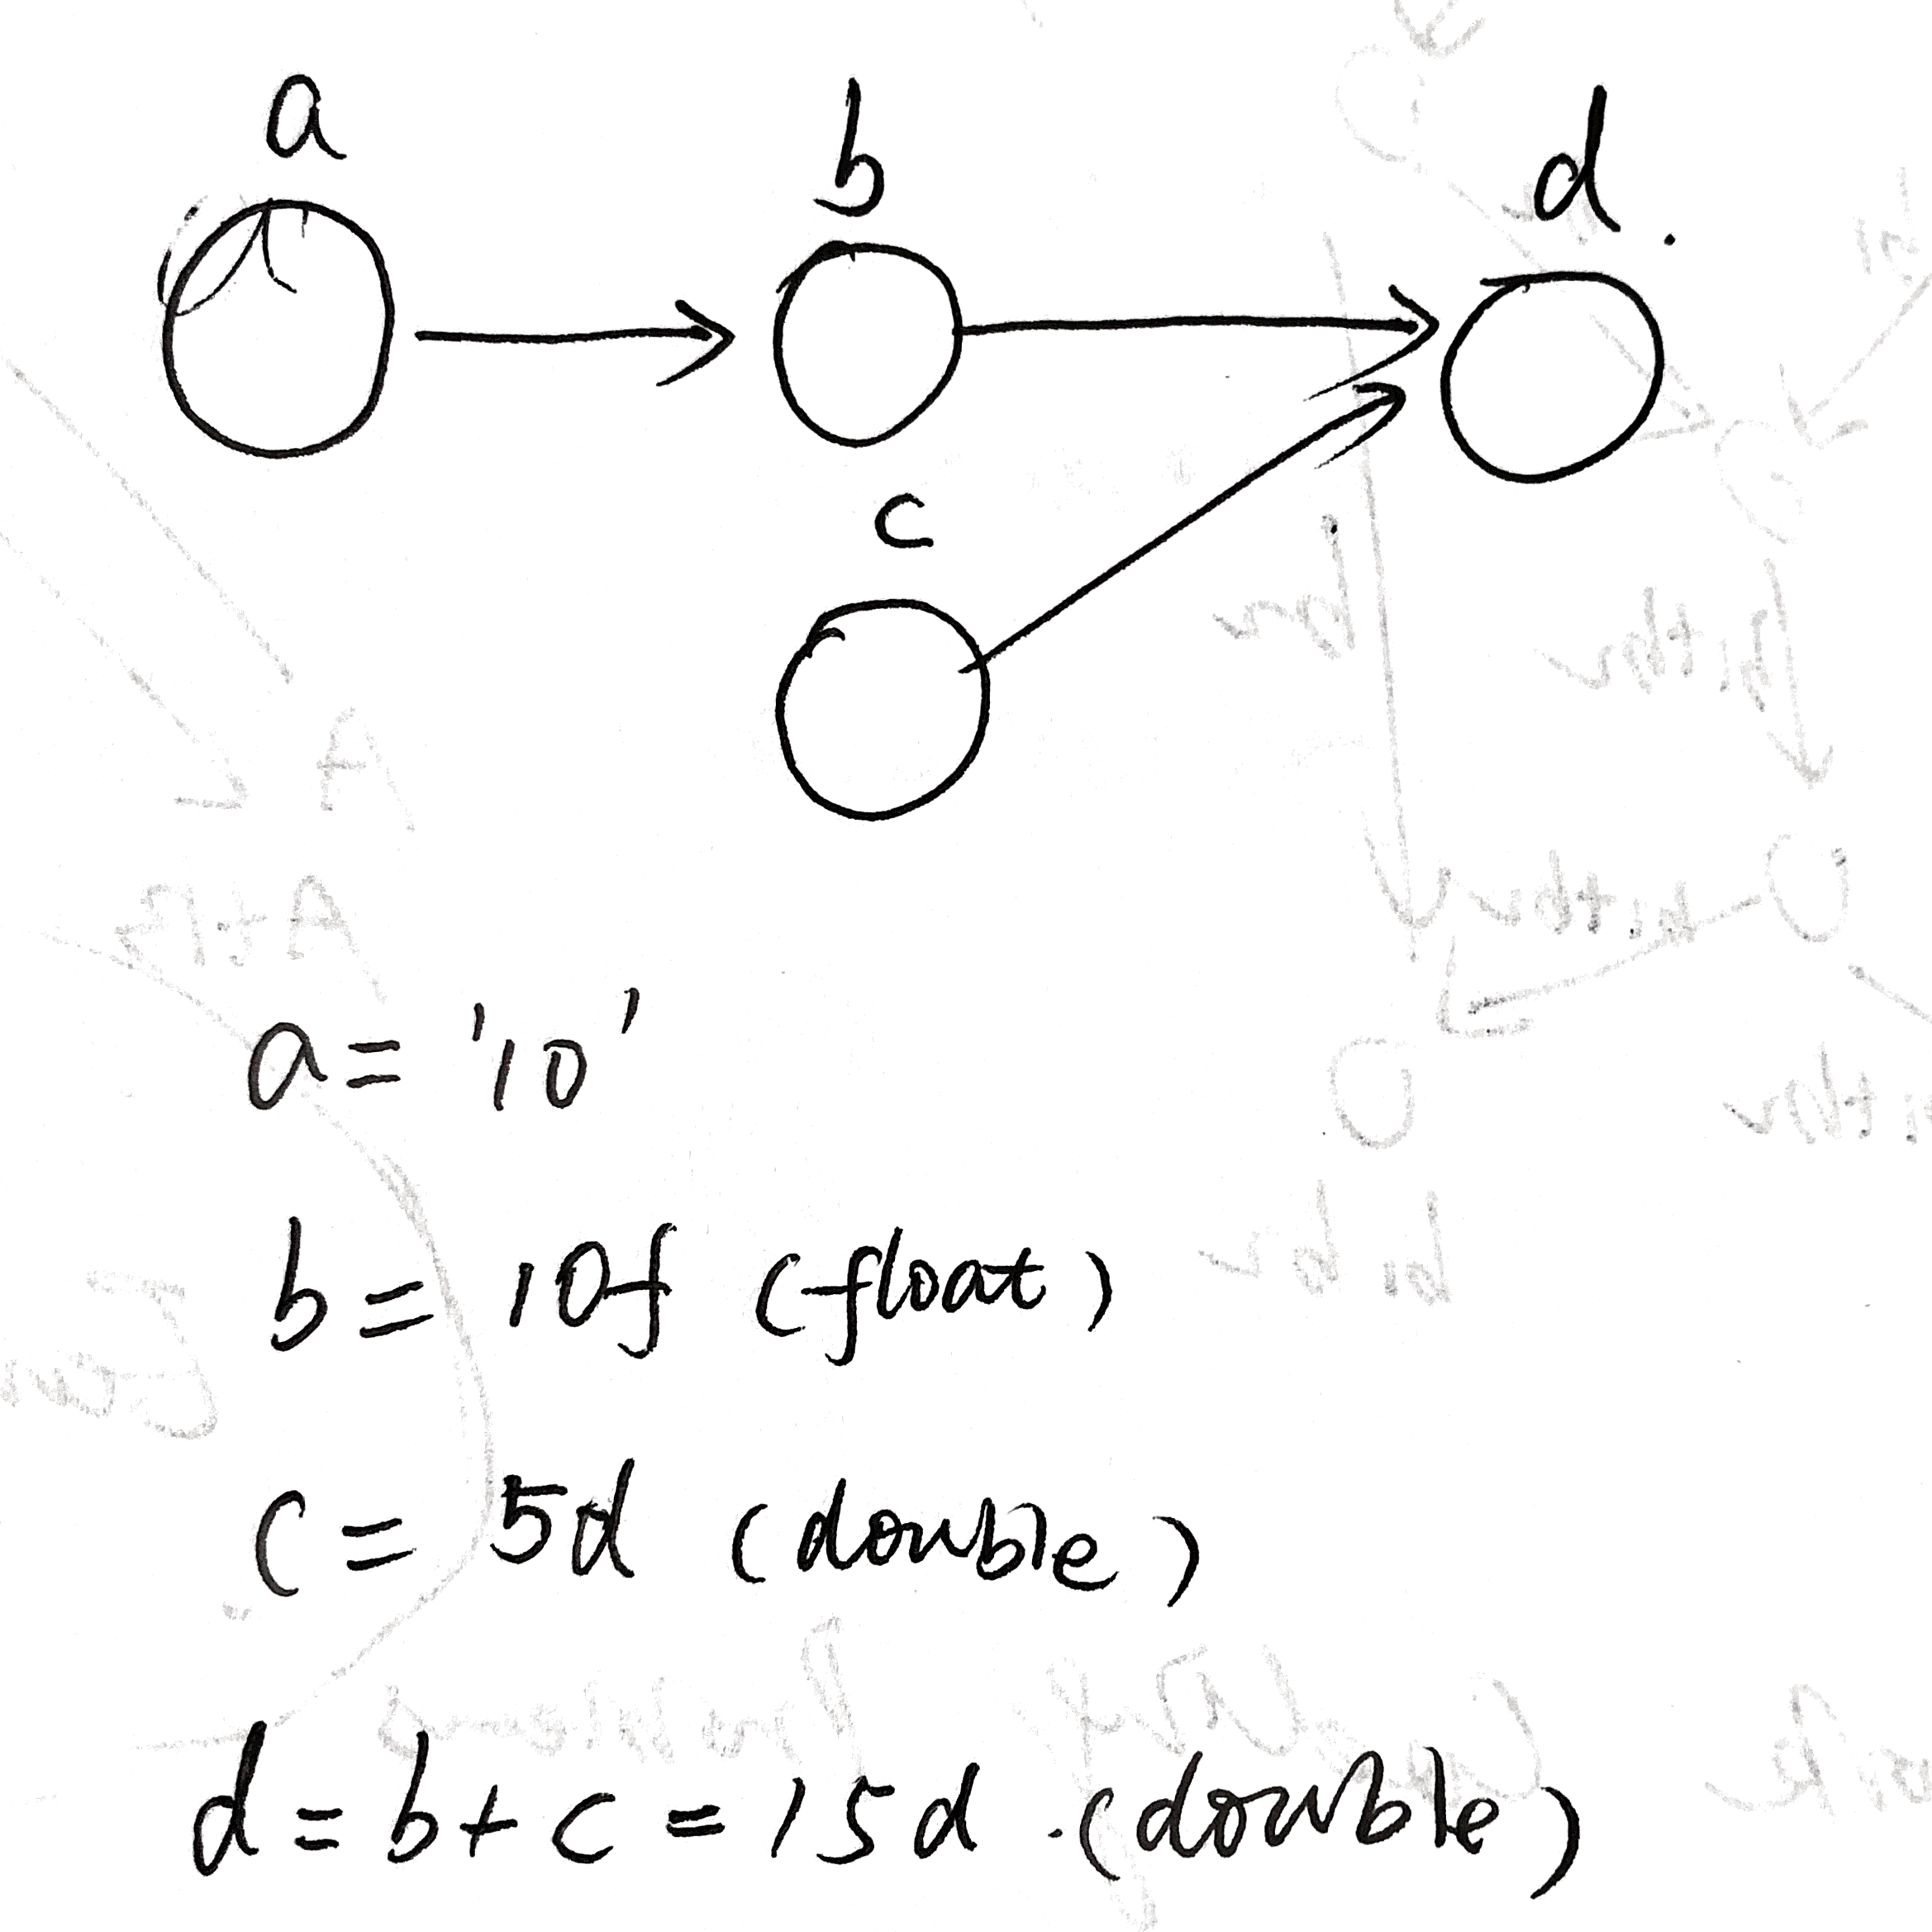 a
b
d.
c
a = '10'
b = 10f (float)
c = 5d (double)
d = b + c = 15d . (double)